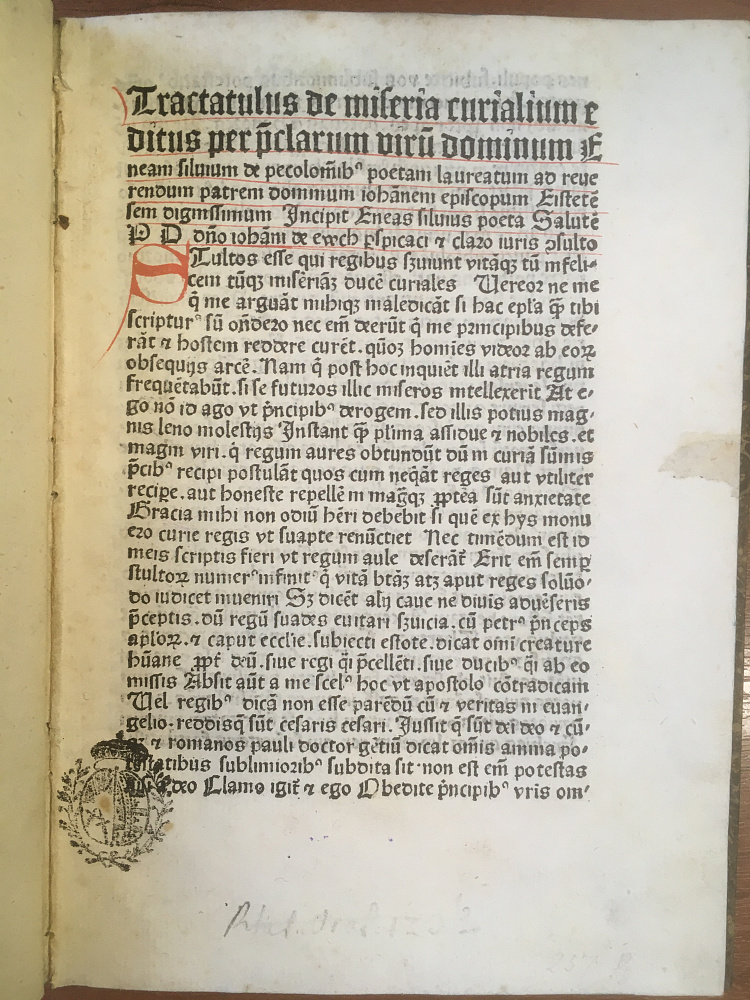 Tractatulus de miseria curialium e
ditus per p̄clarum virū dominum E
neam siluium de pecolomīb᷒ poetam laureatum ad reue
rendum patrem dominum iohānem episcopum Eistetē
sem dignissimum Incipit Eneas siluius poeta Salutē
P D dn̄o iohāni de eych ꝑspicaci ⁊ claro iuris ꝯsulto
STultos esse qui regibus ẜuiunt vitāqꝫ tū infeli-
cem tūqꝫ miseriāꝫ ducē curiales Uereor ne me
q̄ me arguāt mihiqꝫ maledicāt si hac epl̄a q̄ꝫ tibi
scriptur᷒ sū on̄dero nec em̄ deerūt q̄ me principibus defe-
rāt ⁊ hostem reddere curēt. quoꝫ homīes videor ab eoꝝ
obsequijs arcē. Nam q̄ post hoc inquiēt illi atria regum
frequētabūt. si se futuros illic miseros intellexerit At e-
go nō id ago vt p̄ncipib᷒ derogem. sed illis potius mag-
nis leno molestijs Instant q̄ꝫ pl̄ima assidue ⁊ nobiles. et
magni viri. q̄ regum aures obtundūt dū in curiā sūmis
p̄cib᷒ recipi postulāt quos cum neqāt reges aut vtiliter
recipe. aut honeste repellē in maḡqꝫ ꝓptēa sūt anxietate
Gracia mihi non odiū hēri debebit si quē ex hys monu
ero curie regis vt suapte renūctiet Nec timēdum est id
meis scriptis fieri vt regum aule deserāt᷑ Erit em̄ semꝑ
stultoꝝ numer᷒ infinit᷒ q̄ vitā btāꝫ atꝫ aput reges solūo-
do iudicet inueniri Sꝫ dicēt alij caue ne diuīs aduēseris
p̄ceptis. dū regū suades euitari ẜuicia. cū petr᷒ p̄nceps
apl̄oꝝ. ⁊ caput ecclīe. subiecti estote. dicat omī creature
hūane ꝓpt̄ deū. siue regi q̄i p̄cellēti. siue ducib᷒ q̄i ab eo
missis Absit aūt a me scel᷒ hoc vt apostolo cōtradicam
Uel regib᷒ dicā non esse parēdū cū ⁊ veritas in euan-
gelio. reddisq̄ sūt cesaris cesari. Jussit q̄ sūt dei deo ⁊ cū-
⁊ romanos pauli doctor gētiū dicat om̄is anima po-
testatibus sublimiorib᷒ subdita sit. non est em̄ potestas
nisi a deo Clamo igit᷑ ⁊ ego Obedite p̄ncipib᷒ vris om-